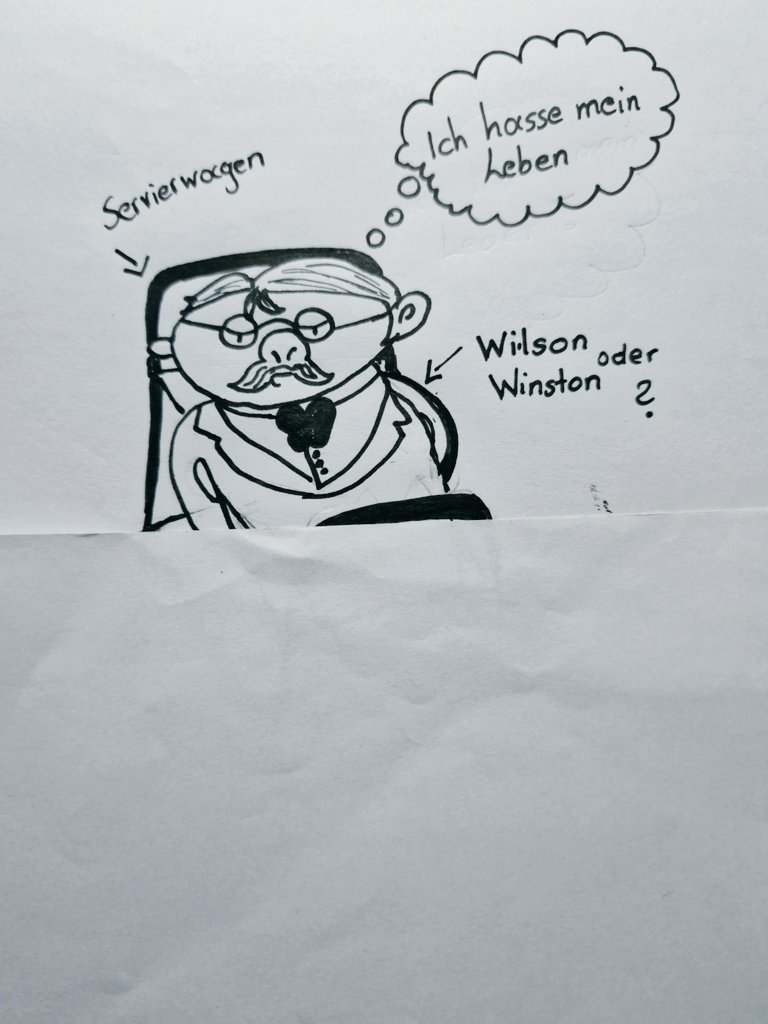 Ich hasse mein
Leben
Servierwagen
Wilson oder
Winston
?